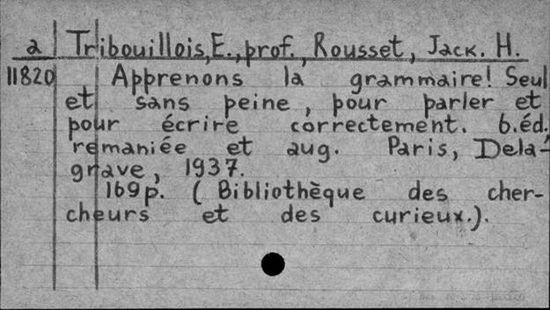 a Tribouillois, E., prof., Rousset, Jack. H.
11820 Apprenons la grammaire! Seul
et sans peine, pour parler et
pour écrire correctement. 6.éd.
remaniée et aug. Paris, Dela-
grave, 1937.
169p. (Bibliothèque des cher-
cheurs et des curieux.).